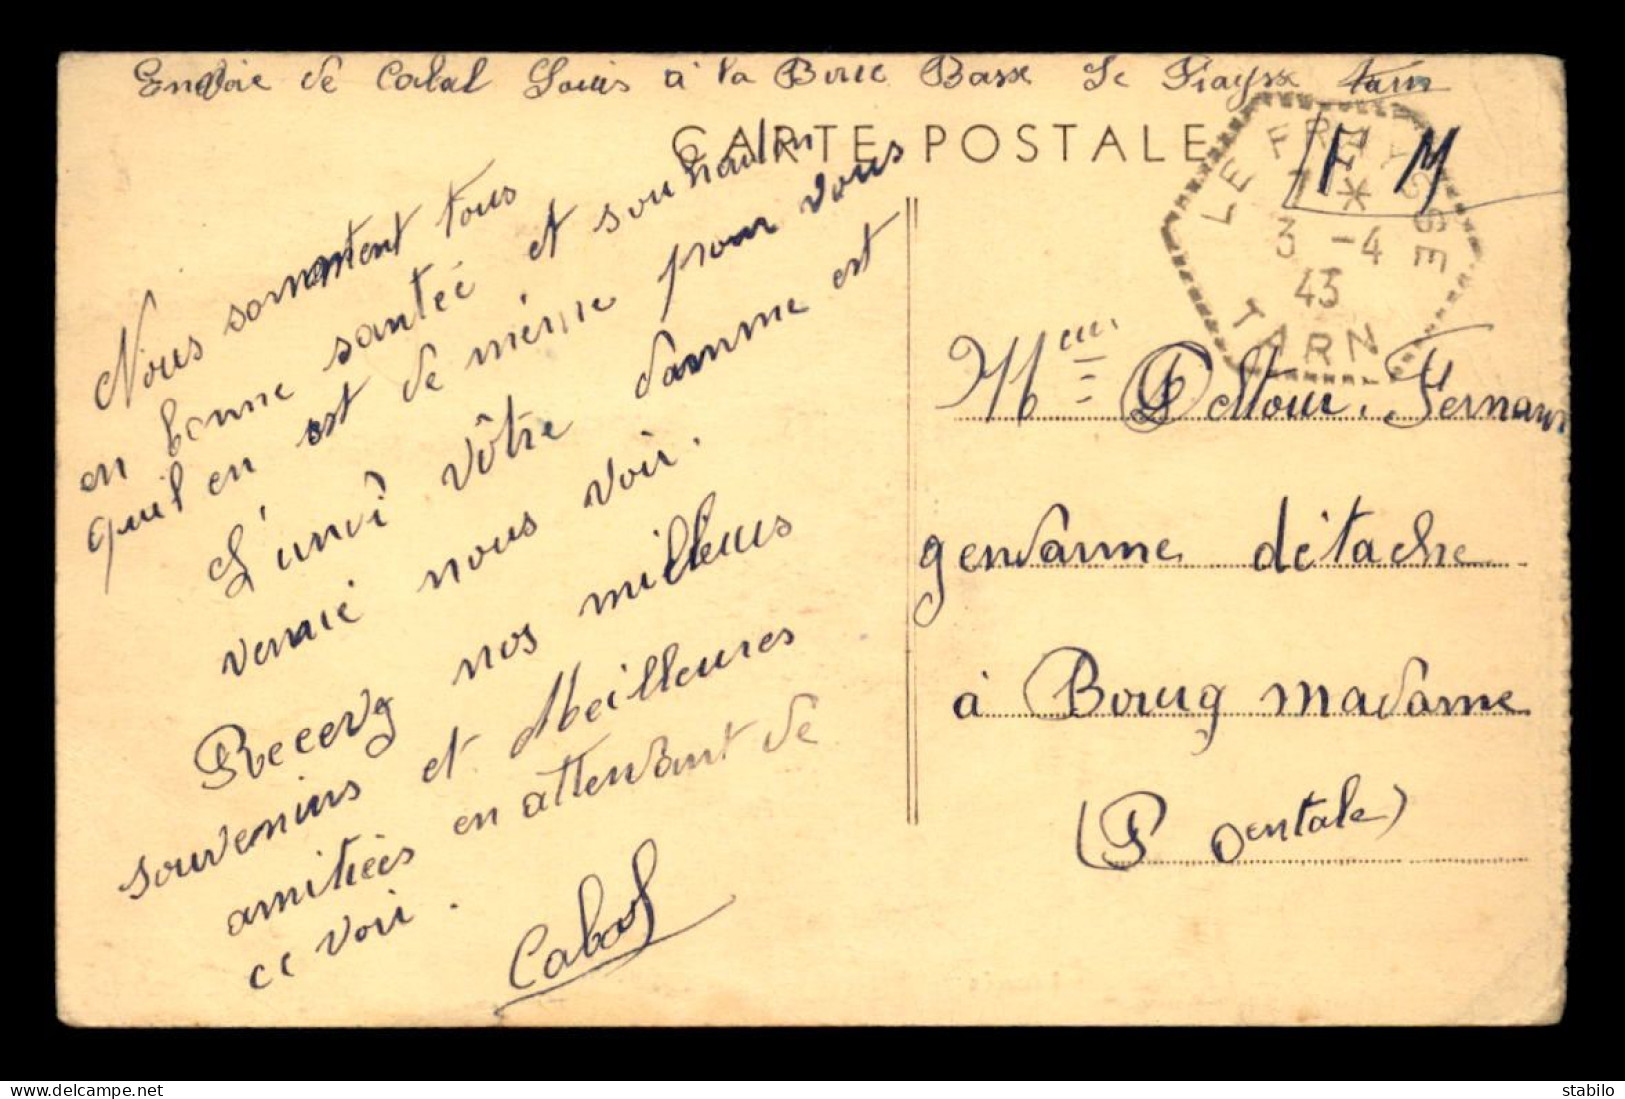 Envoie de Cabal Louis à la Bouc Basse Le Fraysse Tarn
CARTE POSTALE
LE FRAYSSE
7 *
3 -4
43
TARN
F M
Nous somment tous
en bonne santéé et souhaiton
quil en est de même pour vous
L'undî vôtre damme est
venuié nous voir.
Recevg nos milleus
souvenirs et Meilleures
amitiées en attendant de
ce voir.
Cabal
Deltour. Fernan
gendarme détache
à Boug madame
(P Oentale)
stabilo
https://www.delcampe.net